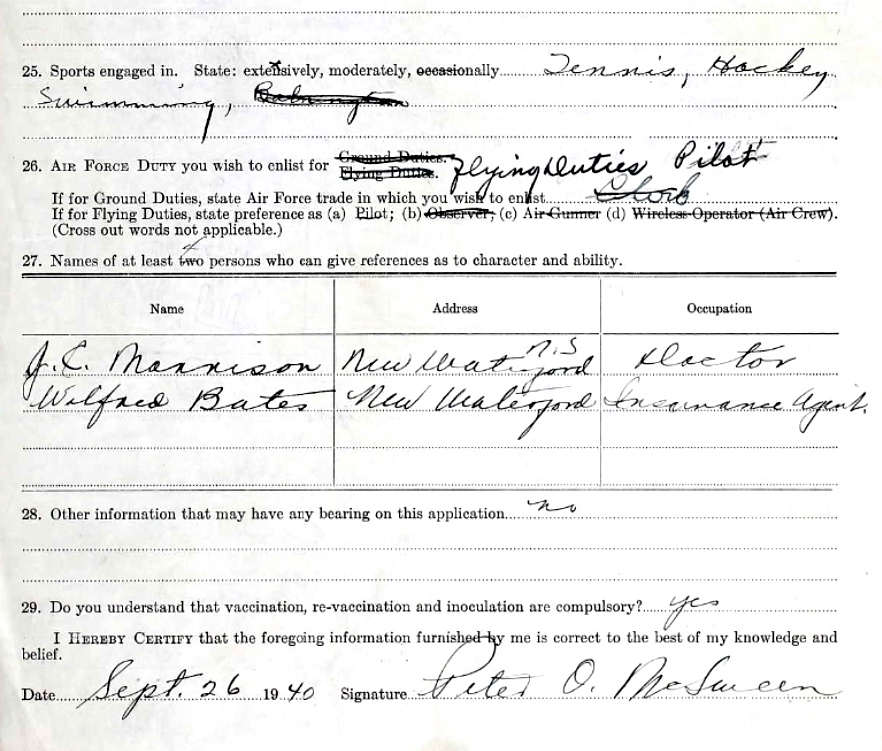 25. Sports engaged in. State: extensively, moderately, occasionally Tennis, Hockey
Swimming,
26. AIR FORCE DUTY you wish to enlist for Ground Duties. Flying Duties. Flying Duties Pilot
If for Ground Duties, state Air Force trade in which you wish to enlist
If for Flying Duties, state preference as (a) Pilot; (b) Observer; (c) Air Gunner (d) Wireless Operator (Air Crew).
(Cross out words not applicable.)
27. Names of at least two persons who can give references as to character and ability.
Name Address Occupation
J.C. Morrison New Waterford N.S Doctor
Wilfred Bates New Waterford Insurance Agent.
28. Other information that may have any bearing on this application. no
29. Do you understand that vaccination, re-vaccination and inoculation are compulsory? yes
I HEREBY CERTIFY that the foregoing information furnished by me is correct to the best of my knowledge and
belief.
Date Sept. 26 1940 Signature Peter O. McSween